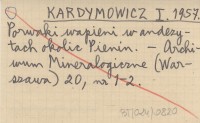 KARDYMOWICZ I. 1957.
Porwaki wapieni w andezy-
tach okolic Pienin. – Archi-
wum Mineralogiczne (War-
szawa) 20, nr 1-2.